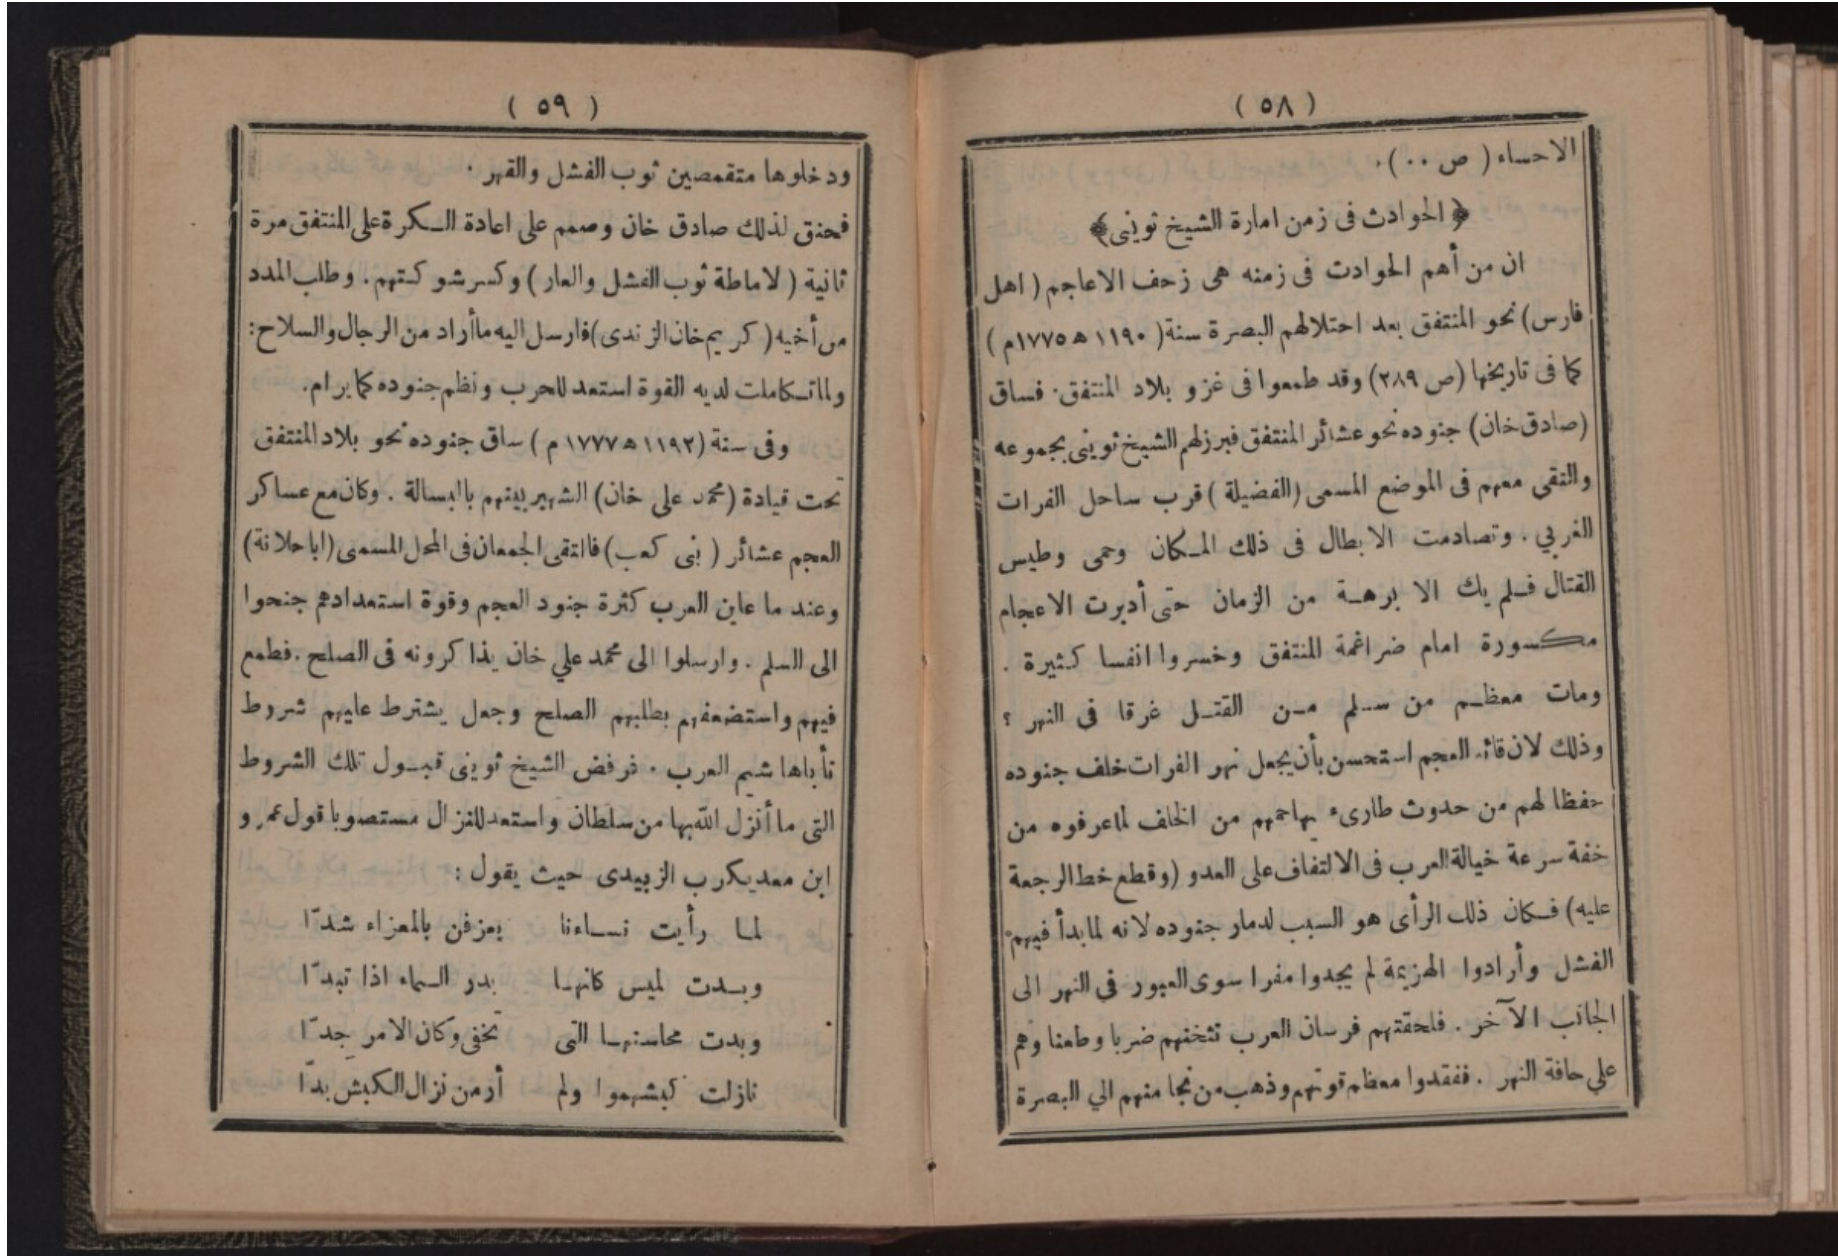 ( ٥٨ )
الاحساء ( ص ٠٠ ) .
﴿ الحوادث فى زمن امارة الشيخ ثوينى ﴾
ان من أهم الحوادث فى زمنه هى زحف الاعاجم ( اهل
فارس ) نحو المنتفق بعد احتلالهم البصرة سنة ( ١١٩٠ ه ١٧٧٥م )
كما فى تاريخها (ص ٢٨٩) وقد طمعوا فى غزو بلاد المنتفق . فساق
(صادق خان) جنوده نحو عشائر المنتفق فبرز لهم الشيخ ثوينى بجموعه
والتقى معهم فى الموضع المسمى (الفضيلة) قرب ساحل الفرات
الغربي . وتصادمت الابطال فى ذلك المكان وحمى وطيس
القتال فلم يك الا برهة من الزمان حتى أدبرت الاعجام
مكسورة امام ضراغمة المنتفق وخسروا انفسا كثيرة .
ومات معظم من سلم من القتل غرقا فى النهر ؟
وذلك لان قائد العجم استحسن بأن يجعل نهر الفرات خلف جنوده
حفظا لهم من حدوث طارىء يهاجمهم من الخلف لما عرفوه من
خفة سرعة خيالة العرب فى الالتفاف على العدو (وقطع خط الرجعة
عليه) فكان ذلك الرأى هو السبب لدمار جنوده لانه لما بدأ فيهم
الفشل وأرادوا الهزيمة لم يجدوا مفرا سوى العبور في النهر الى
الجانب الآخر . فلحقتهم فرسان العرب تثخنهم ضربا وطعنا وهم
على حافة النهر . ففقدوا معظم قوتهم وذهب من نجا منهم الي البصرة
( ٥٩ )
ودخلوها متقمصين ثوب الفشل والقهر .
فحنق لذلك صادق خان وصمم على اعادة الكرة على المنتفق مرة
ثانية ( لاماطة ثوب الفشل والعار ) وكسر شوكتهم . وطلب المدد
من أخيه ( كريم خان الزندى ) فارسل اليه ما أراد من الرجال والسلاح :
ولما تكاملت لديه القوة استعد للحرب ونظم جنوده كما يرام .
وفى سنة (١١٩٢ ه ١٧٧٧ م ) ساق جنوده نحو بلاد المنتفق
تحت قيادة (محمد على خان) الشهير بينهم بالبسالة . وكان مع عساكر
العجم عشائر ( بنى كعب) فالتقى الجمعان فى المحل المسمى (ابا حلانة)
وعند ما عاين العرب كثرة جنود العجم وقوة استعدادهم جنحوا
الى السلم . وارسلوا الى محمد علي خان يذاكرونه فى الصلح . فطمع
فيهم واستضعفهم بطلبهم الصلح وجعل يشترط عليهم شروط
تأباها شيم العرب . فرفض الشيخ ثوينى قبول تلك الشروط
التى ما أنزل الله بها من سلطان واستعد للنزال مستصوبا قول عمرو
ابن معديكرب الزبيدى حيث يقول :
لما رأيت نساءنا يعزفن بالمعزاء شدّا
وبدت لميس كانها بدر السماء اذا تبدّا
وبدت محاسنها التى تخفى وكان الامر جدّا
نازلت كبشهموا ولم أر من نزال الكبش بدّا